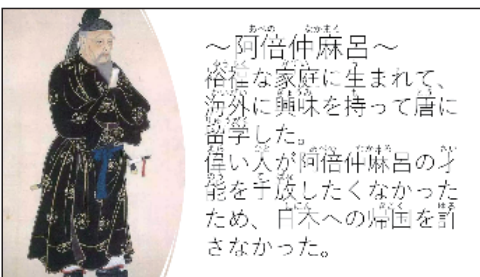 ～阿倍仲麻呂～
裕福な家庭に生まれて、
海外に興味を持って唐に
留学した。
偉い人が阿倍仲麻呂の才
能を手放したくなかった
ため、日本への帰国を許
さなかった。